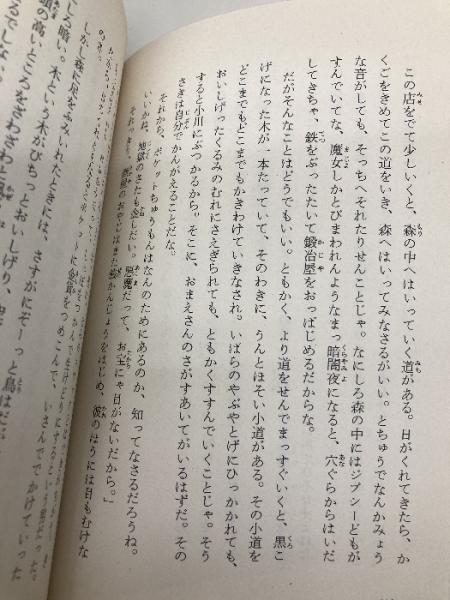 この店をでて少しいくと、森の中へはいっていく道がある。日がくれてきたら、か
くごをきめてこの道をいき、森へはいってみなさるがいい。とちゅうでなんかみょう
な音がしても、そっちへそれたりせんことじゃ。なにしろ森の中にはジプシーどもが
すんでいてな、魔女しかとびまわれんようなまっ暗闇夜になると、穴ぐらからはいだ
してきちゃ、鉄をぶったたいて鍛冶屋をおっぱじめるだからな。
だがそんなことはどうでもいい。ともかく、より道をせんでまっすぐいくと、黒こ
げになった木が、一本たっていて、そのわきに、うんとほそい小道がある。その小道を
どこまでもどこまでもかきわけていきなされ。いばらのやぶやとげにひっかかれても、
おいしげったくるみのむれにさえぎられても、ともかくすすんでいくことじゃ。そう
すると小川にぶつかるから。そこに、おまえさんのさがすあいてがいるはずだ。その
さきは自分でかんがえることだな。
それから、ポケットちゅうもんはなんのためにあるのか、知ってなさるだろうね。
いいかね、地獄のさたも金しだい。悪魔だって、お宝にゃ目がないだから。」
それっきり、
はじめ、彼のほうには目もむけな
に金貨をつめこんで、いさんででかけていった。
しかし森に足をふみいれたときには、さすがにぞーっと鳥はだ
しろ暗い。木という木がびちっとおいしげり、
頭の高いところをざわざわと